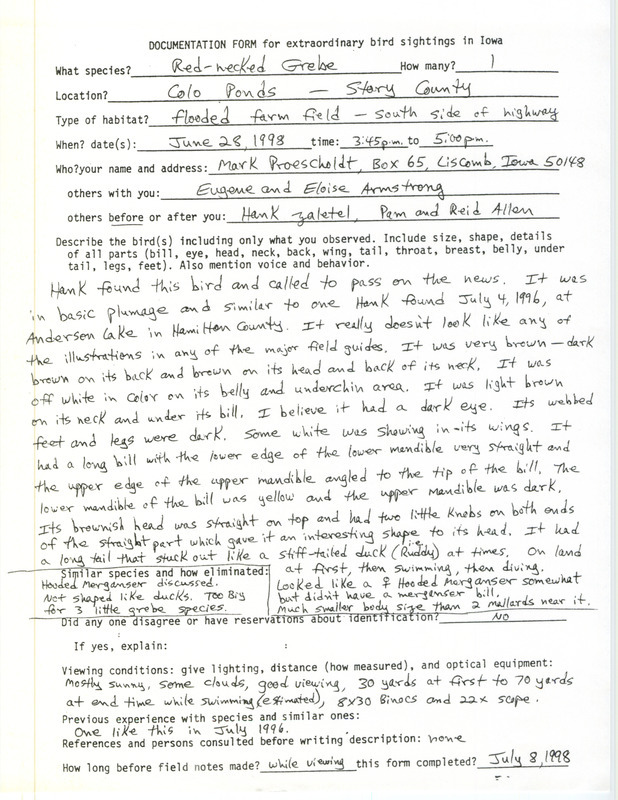 DOCUMENTATION FORM for extraordinary bird sightings in Iowa
What species? Red-necked Grebe How many? 1
Location? Colo Ponds — Story County
Type of habitat? flooded farm field — south side of highway
When? date(s): June 28, 1998 time: 3:45 p.m. to 5:00 p.m.
Who?your name and address: Mark Proescholdt, Box 65, Liscomb, Iowa 50148
others with you: Eugene and Eloise Armstrong
others before or after you: Hank Zaletel, Pam and Reid Allen
Describe the bird(s) including only what you observed. Include size, shape, details
of all parts (bill, eye, head, neck, back, wing, tail, throat, breast, belly, under
tail, legs, feet). Also mention voice and behavior.
Hank found this bird and called to pass on the news. It was
in basic plumage and similar to one Hank found July 4, 1996, at
Anderson Lake in Hamilton County. It really doesn't look like any of
the illustrations in any of the major field guides. It was very brown — dark
brown on its back and brown on its head and back of its neck. It was
off white in color on its belly and underchin area. It was light brown
on its neck and under its bill. I believe it had a dark eye. Its webbed
feet and legs were dark. Some white was showing in its wings. It
had a long bill with the lower edge of the lower mandible very straight and
the upper edge of the upper mandible angled to the tip of the bill. The
lower mandible of the bill was yellow and the upper mandible was dark.
Its brownish head was straight on top and had two little knobs on both ends
of the straight part which gave it an interesting shape to its head. It had
a long tail that stuck out like a stiff-tailed duck (i.e. Ruddy) at times. On land
at first, then swimming, then diving.
Similar species and how eliminated:
Hooded Merganser discussed.
Not shaped like ducks. Too Big
for 3 little grebe species.
Looked like a ♀ Hooded Merganser somewhat
but didn't have a merganser bill.
Much smaller body size than 2 mallards near it.
Did any one disagree or have reservations about identification? NO
If yes, explain:
Viewing conditions: give lighting, distance (how measured), and optical equipment:
Mostly sunny, some clouds, good viewing, 30 yards at first to 70 yards
at end time while swimming (estimated), 8x30 Binocs and 22x scope.
Previous experience with species and similar ones:
One like this in July 1996.
References and persons consulted before writing description: none
How long before field notes made? while viewing this form completed? July 8, 1998